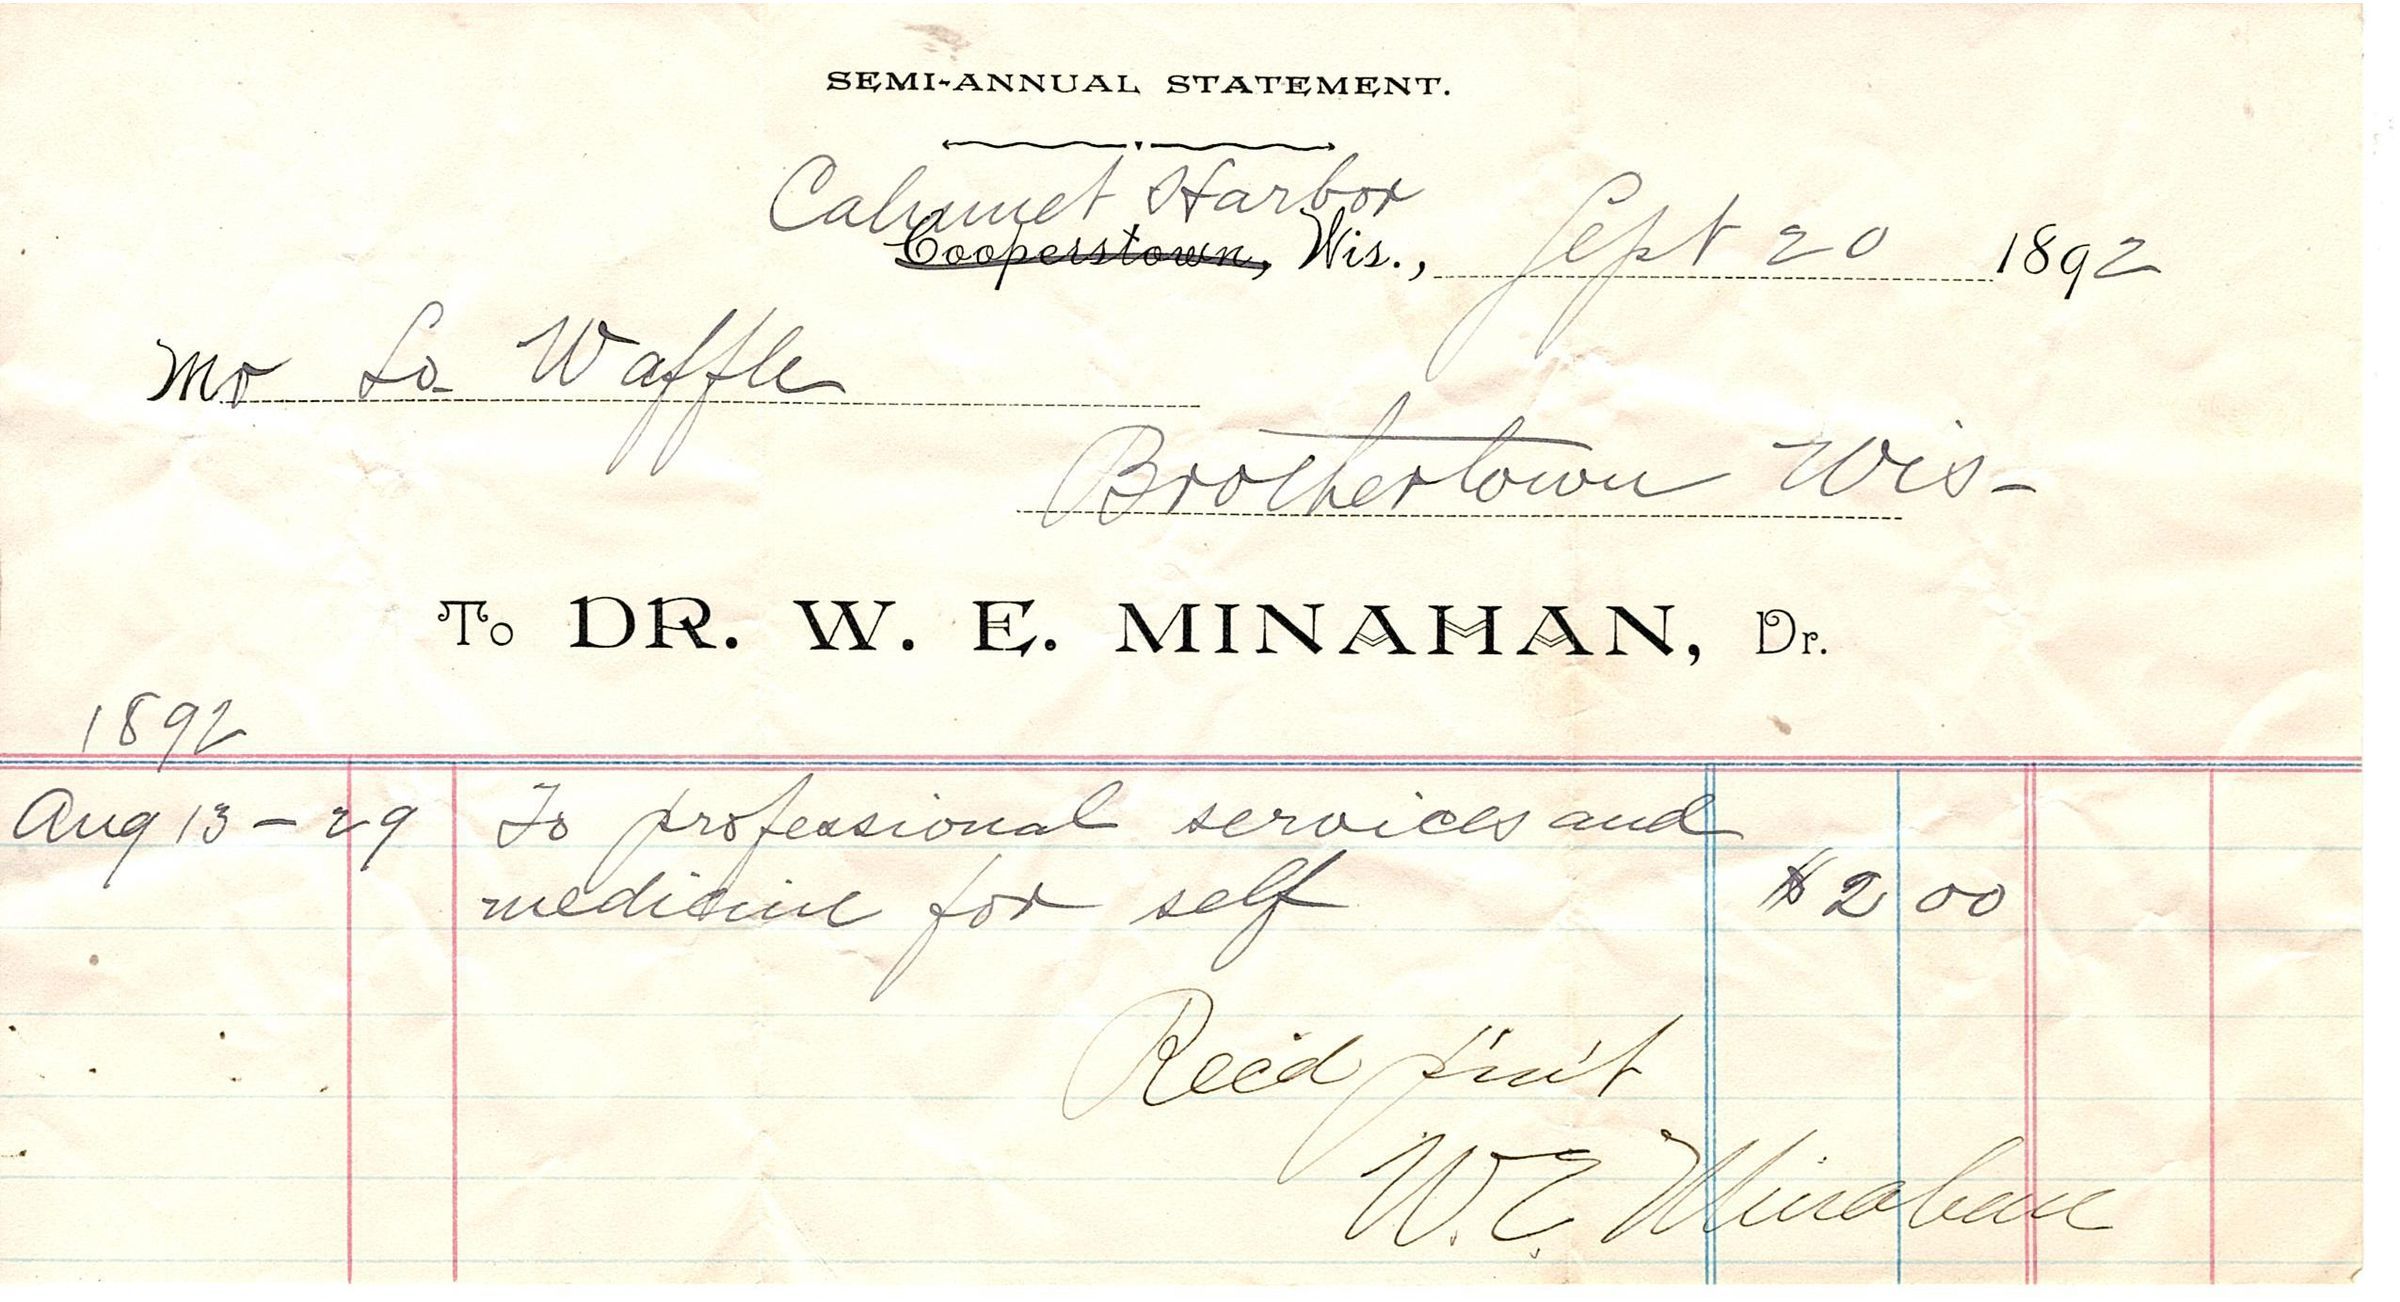 SEMI-ANNUAL STATEMENT.
Calumet Harbor
Cooperstown, Wis., Sept 20 1892
Mr Lo Waffle
Brothertown Wis-
To DR. W. E. MINAHAN, Dr.
1892
Aug 13-29 To professional services and
medicine for self $2 00
Rec'd pm't
W. E. Minahan